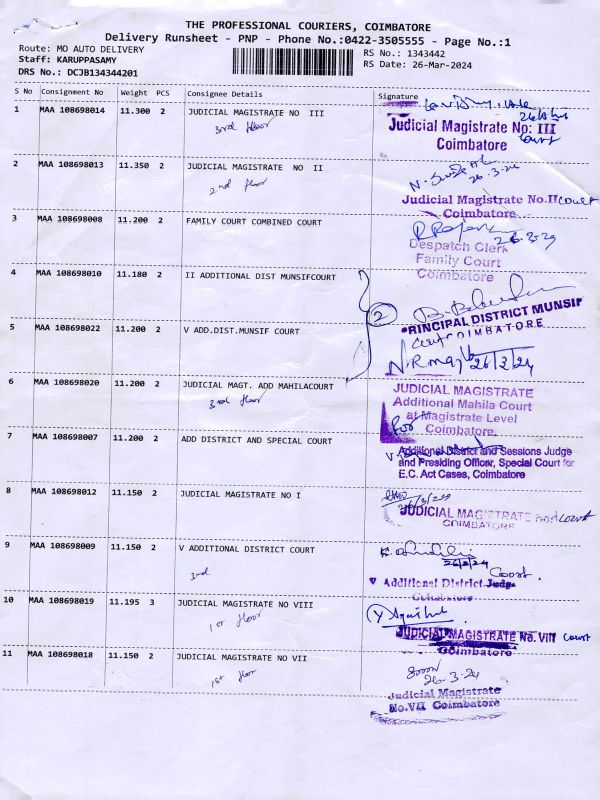 THE PROFESSIONAL COURIERS, COIMBATORE
Delivery Runsheet - PNP - Phone No.:0422-3505555 - Page No.:1
Route: MO AUTO DELIVERY
RS No.: 1343442
Staff: KARUPPASAMY
RS Date: 26-Mar-2024
DRS No.: DCJB134344201
S No Consignment No Weight PCS Consignee Details Signature
1 MAA 108698014 11.300 2 JUDICIAL MAGISTRATE NO III
3rd floor
Judicial Magistrate No: III
Court
Coimbatore
2 MAA 108698013 11.350 2 JUDICIAL MAGISTRATE NO II
2nd floor
26.3.24
Judicial Magistrate No.II Court
Coimbatore
3 MAA 108698008 11.200 2 FAMILY COURT COMBINED COURT
26.3.24
Despatch Clerk
Family Court
Coimbatore
4 MAA 108698010 11.180 2 II ADDITIONAL DIST MUNSIFCOURT
2
PRINCIPAL DISTRICT MUNSIF
Court COIMBATORE
5 MAA 108698022 11.200 2 V ADD.DIST.MUNSIF COURT
26/3/24
6 MAA 108698020 11.200 2 JUDICIAL MAGT. ADD MAHILACOURT
3rd floor
JUDICIAL MAGISTRATE
Additional Mahila Court
at Magistrate Level
Coimbatore.
7 MAA 108698007 11.200 2 ADD DISTRICT AND SPECIAL COURT
Additional District and Sessions Judge
and Presiding Officer, Special Court for
E.C. Act Cases, Coimbatore
8 MAA 108698012 11.150 2 JUDICIAL MAGISTRATE NO I
26/3/24
JUDICIAL MAGISTRATE No I Court
COIMBATORE
9 MAA 108698009 11.150 2 V ADDITIONAL DISTRICT COURT
3rd
26/3/24
Court.
V Additional District Judge
Coimbatore
10 MAA 108698019 11.195 3 JUDICIAL MAGISTRATE NO VIII
1st floor
JUDICIAL MAGISTRATE No. VIII Court
Coimbatore
11 MAA 108698018 11.150 2 JUDICIAL MAGISTRATE NO VII
1st floor
26.3.24
Judicial Magistrate
No.VII Coimbatore